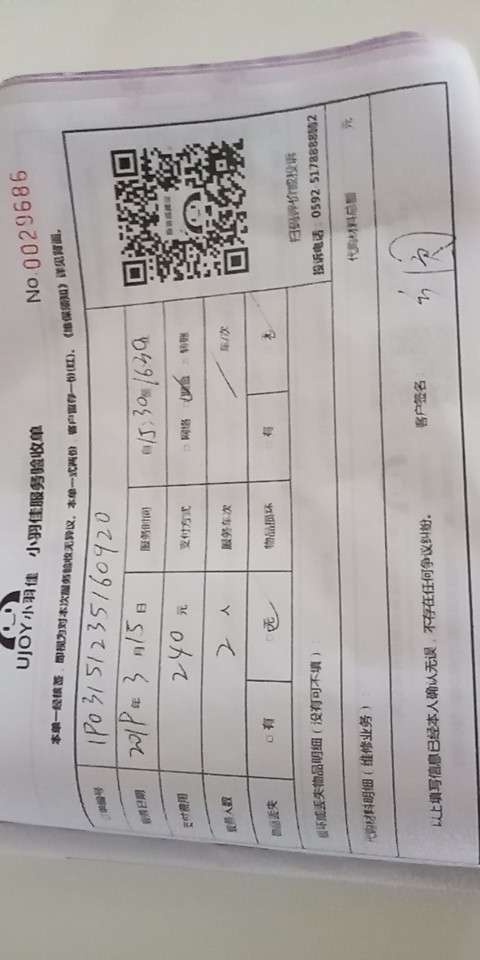 UJOY小羽佳 小羽佳服务验收单
No.0029686
本单一经核签，即视为对本次服务验收无异议。本单一式两份，客户留存一份(红)。《维保须知》详见背面。
订单编号 1P03151235160920
服务日期 2019年3月15日 服务时间 自15:30至1630
支付费用 240元 支付方式 □网络 □现金 □转账
服务人数 2人 服务车次 车/次
物品丢失 □有 □无 物品损坏 □有
扫码评价或投诉
投诉电话：0592 5178888转2
损坏或丢失物品明细（没有可不填）：
代购材料明细（维修业务）： 代购材料总额 元
以上填写信息已经本人确认无误，不存在任何争议纠纷。 客户签名：